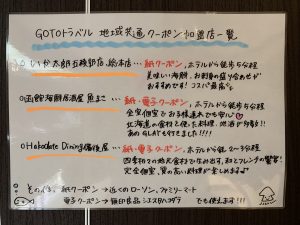 GOTOトラベル 地域共通クーポン加盟店一覧
○いか太郎五稜郭店、総本店…紙クーポン、ホテルから徒歩5分程
美味しい海鮮、お刺身の盛り合せが
おすすめです！コスパ最高
○函館海鮮居酒屋 魚まさ…紙・電子クーポン、ホテルから徒歩5分程
全室個室でお子様連れでも安心
北海道の食材を使った料理、地酒が多数！！
○Hakodate Dining備後屋…紙・電子クーポン、ホテルから徒歩2~3分程
四季折々の地元食材で作られます、和とフレンチの饗宴！
完全個室、質の高い料理が楽しめます
その他、紙クーポン→近くのローソン、ファミリーマート
電子クーポン→無印良品シエスタハコダテ でも使えます！！